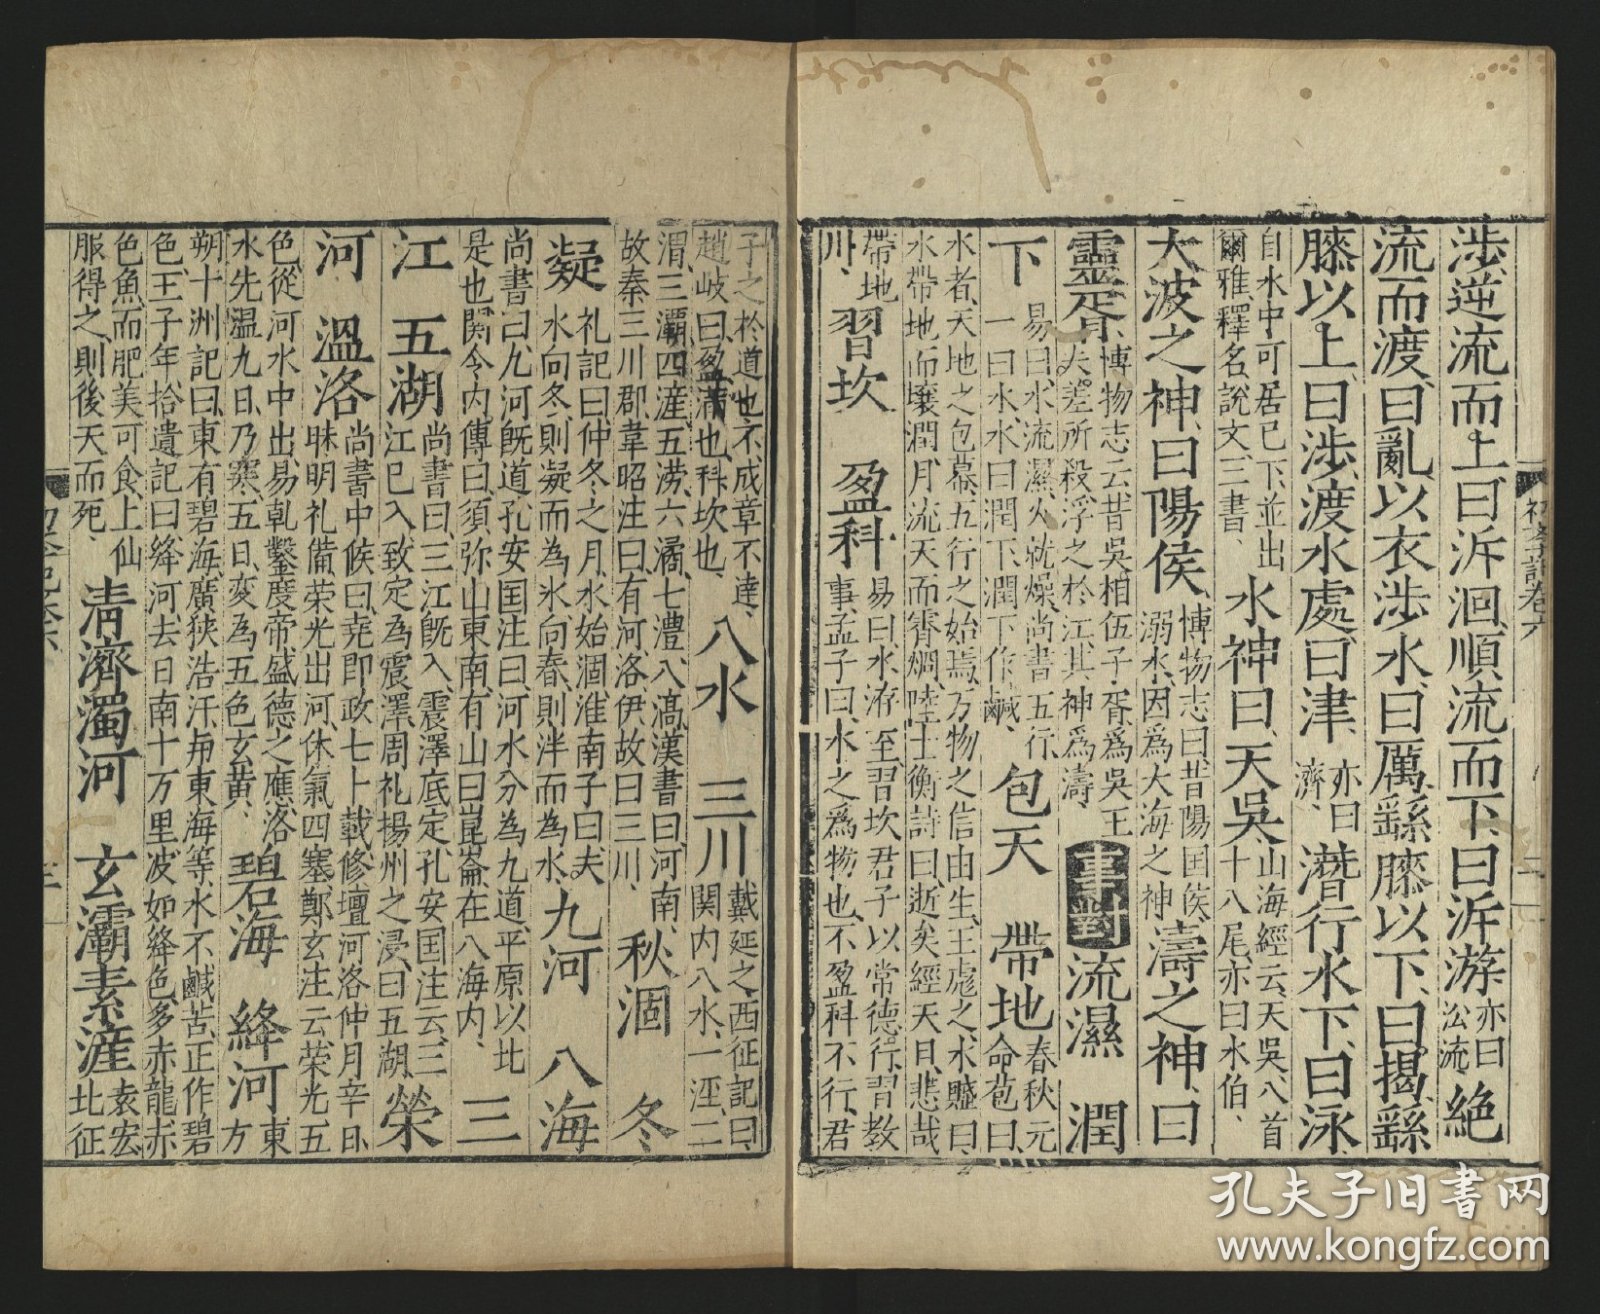 涉、逆流而上曰泝洄、順流而下、曰泝游、亦曰㳂流、絶
流而渡、曰亂、以衣涉水、曰厲、繇膝以下、曰揭、繇
膝以上、曰涉、渡水處、曰津、亦曰濟、潜行水下、曰泳、
自水中可居已下、並出爾雅、釋名、說文、三書、水神曰、天吳、山海經云、天吳、八首十八尾、亦曰水伯、
大波之神、曰陽侯、博物志曰、昔陽国侯、溺水、因爲大海之神、濤之神、曰
靈胥、博物志云、昔吳相伍子胥、爲吳王夫差所殺、浮之於江、其神爲濤、事對 流濕 潤
下 易曰、水流濕、火就燥、尚書五行、一曰水、水曰潤下、潤下作鹹、 包天 帶地 春秋元命苞曰、
水者、天地之包幕、五行之始焉、万物之信由生、王處之、水贒曰、水帶地、而壤潤、月流天而霄烱、陸士衡詩曰、逝矣經天日、悲哉
帶地川、 習坎 盈科 易曰、水洊至、習坎、君子以常德行、習教事、孟子曰、水之爲物也、不盈科不行、君
初學記卷六
二
子之於道也、不成章不達、趙岐曰、盈滿也、科、坎也、 八水 三川 戴延之、西征記曰、関内八水、一涇、二
渭、三灞、四滻、五澇、六潏、七灃、八滈、漢書曰、河南、故秦三川郡、韋昭注曰、有河洛伊、故曰三川、 秋涸 冬
凝 礼記曰、仲冬之月、水始涸、淮南子曰、夫水向冬、則凝而為氷、向春、則泮而為水、 九河 八海
尚書曰、九河旣道、孔安国注曰、河水分為九道、平原以北是也、関令内傳曰、須弥山東南有山、曰崑崙、在八海内、 三
江 五湖 尚書曰、三江旣入、震澤底定、孔安国注云、三江巳入、致定為震澤、周礼、揚州之浸、曰五湖、 榮
河 溫洛 尚書中候曰、尭即政七十載、修壇河洛、仲月辛日、昧明礼備、荣光出河、休氣四塞、鄭玄注云、荣光五
色、從河水中出、易乹鑿度帝盛德之應、洛水先温、九日乃寒、五日変為五色玄黄、 碧海 絳河 東方
朔十洲記曰、東有碧海、廣狹浩汗、与東海等、水不鹹苦、正作碧色、王子年拾遺記曰、絳河、去日南十万里、波如絳色、多赤龍赤
色魚、而肥美可食、上仙服得之、則後天而死、 清濟濁河 玄灞素滻 袁宏北征
三
孔夫子旧书网
www.kongfz.com